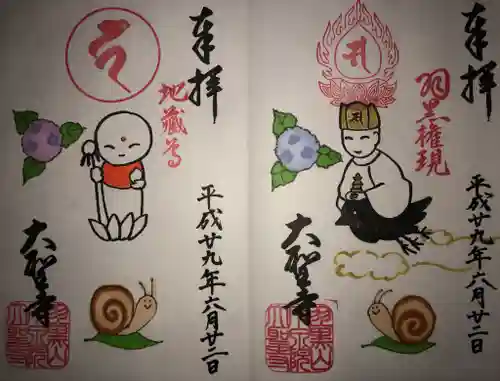 奉拝
羽黒権現
平成廿九年六月廿二日
大聖寺
奉拝
地蔵尊
平成廿九年六月廿二日
大聖寺